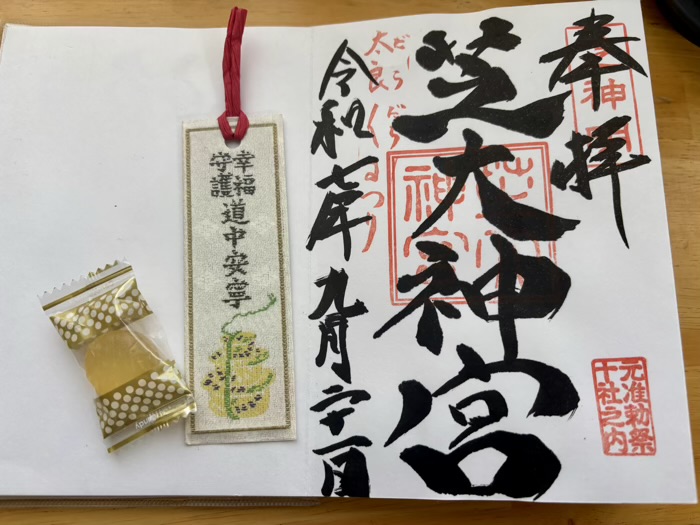 奉拝
芝大神宮
令和七年九月二十一日
だらだら
太良
まつり
元准勅祭
十社之内
幸福
守護
道中安寧